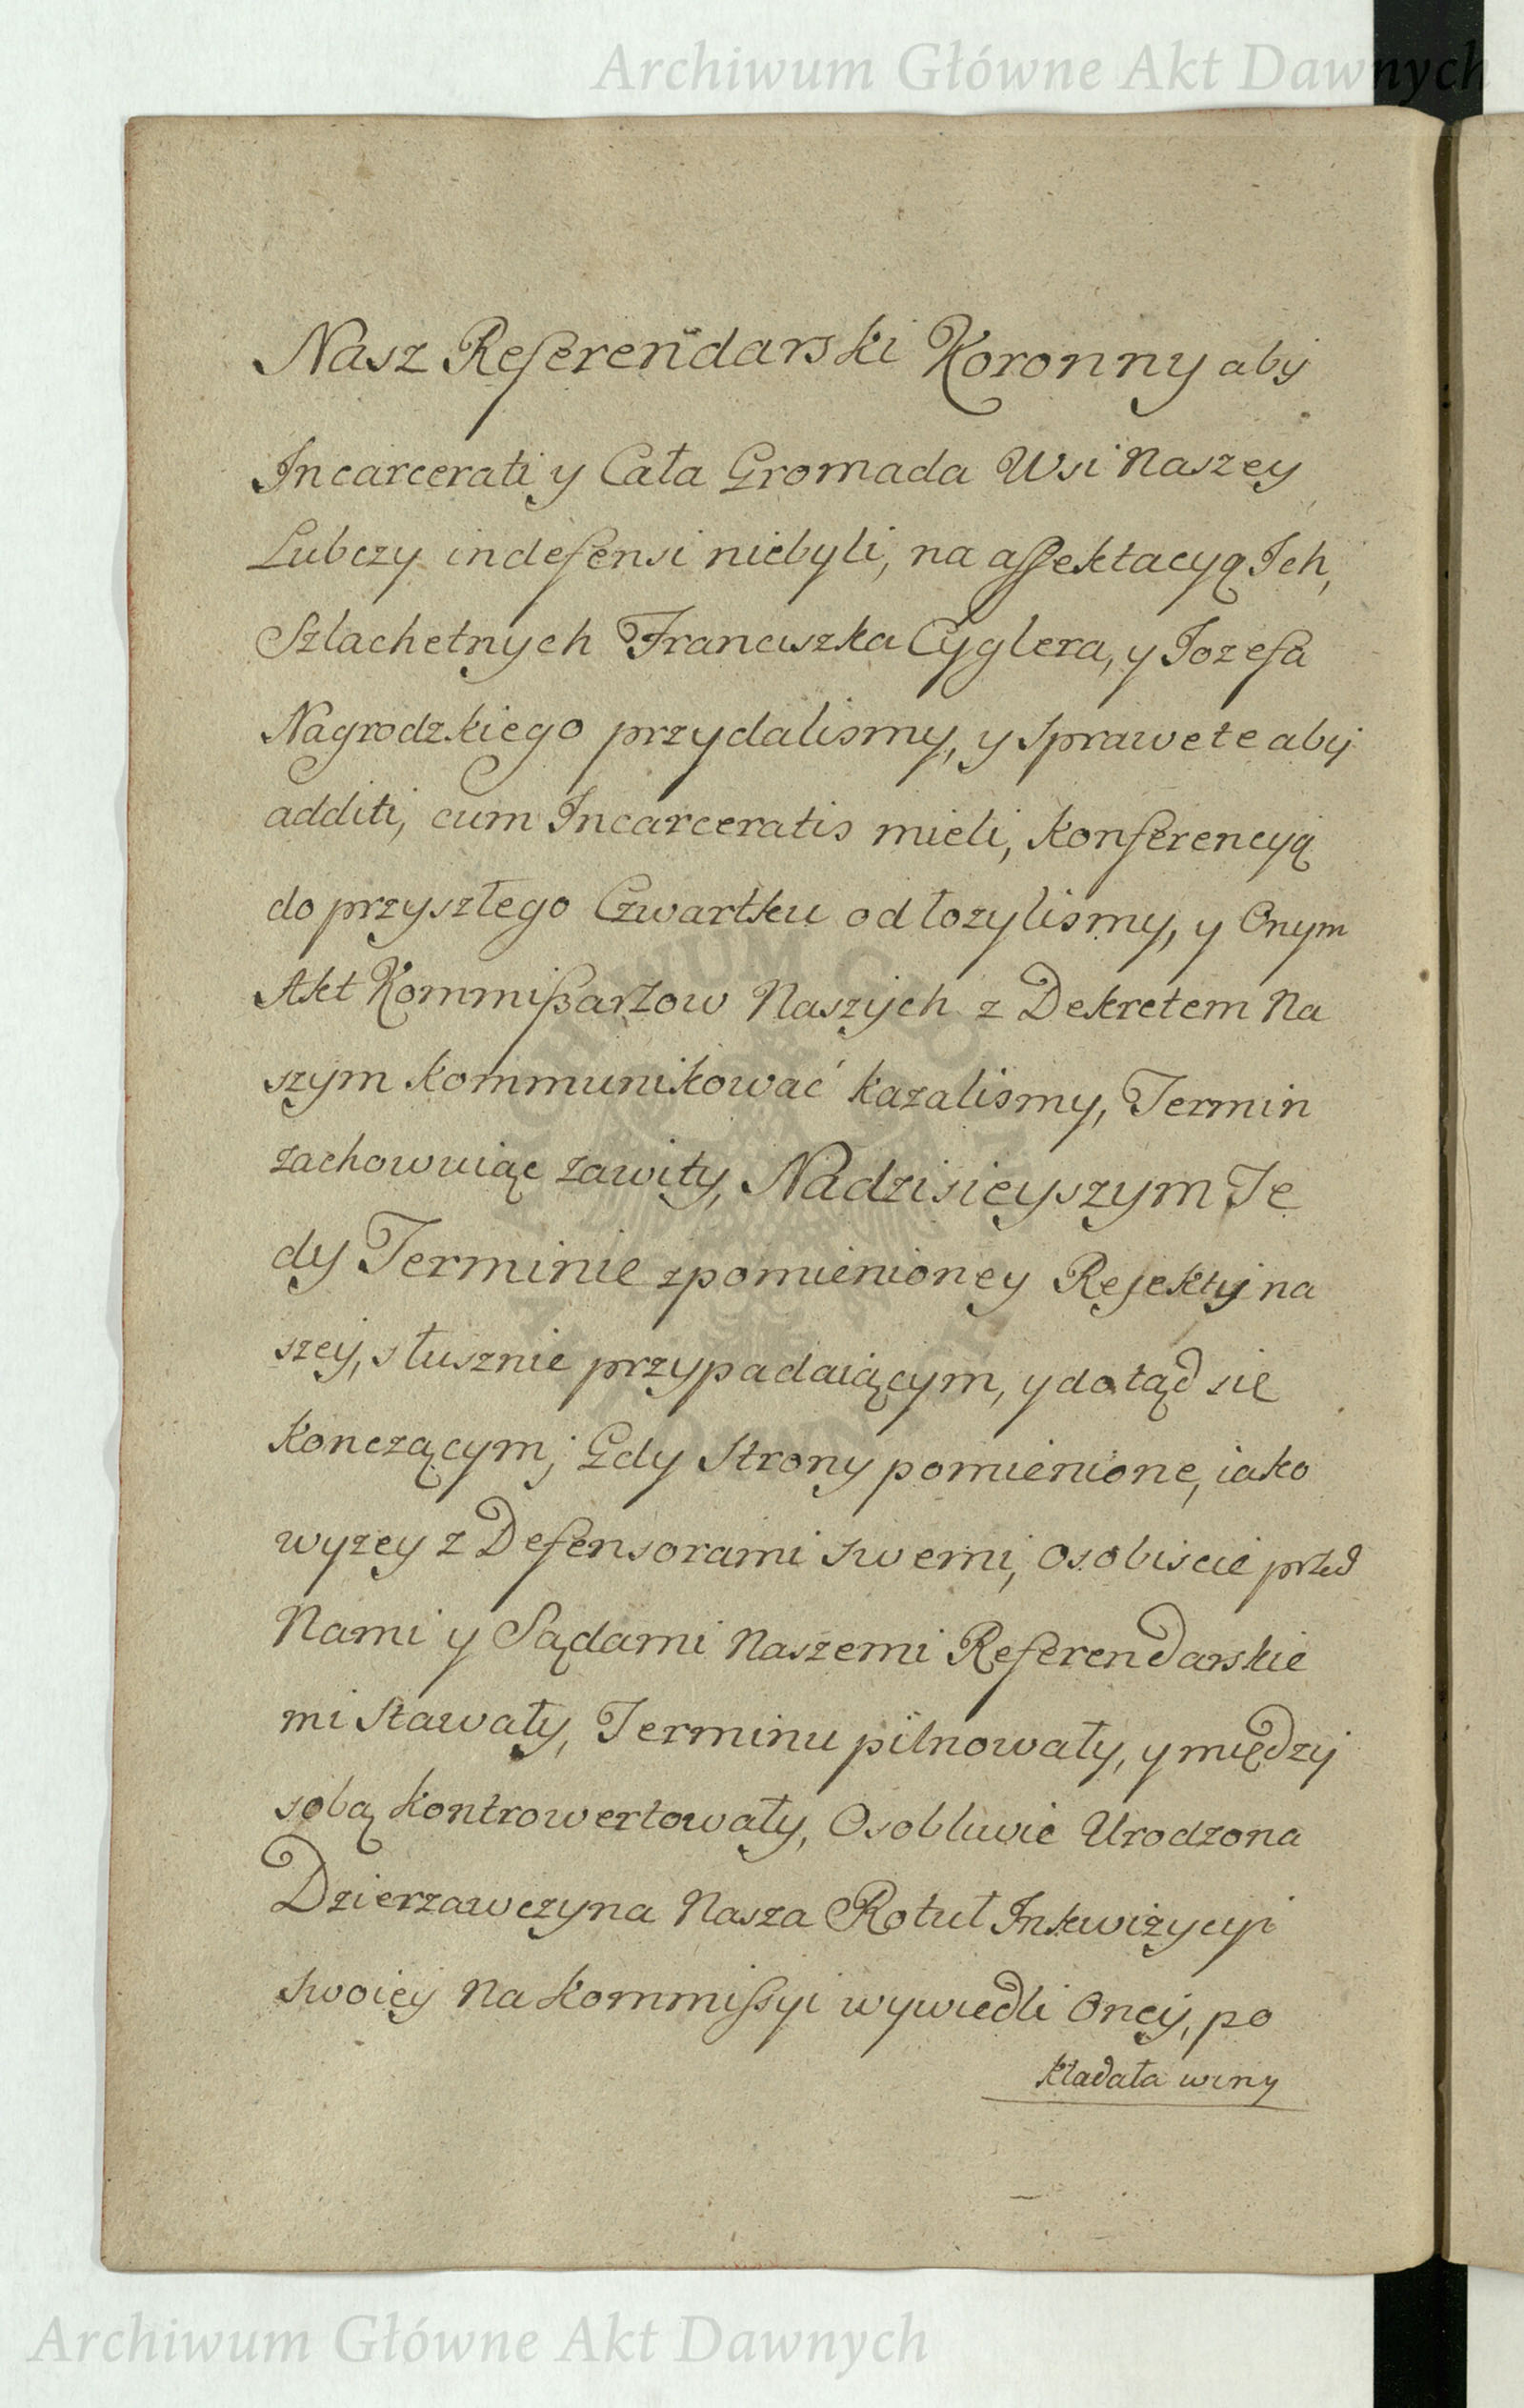 Archiwum Główne Akt Dawnych
Nasz Referendarski Koronny aby
Incarcerati y Cała Gromada Wsi Naszey
Lubczy indefensi niebyli, na affektacyą Ich,
Szlachetnych Franciszka Cyglera, y Jozefa
Nagrodzkiego przydalismy, y sprawe te aby
additi, cum Incarceratis mieli, konferencyą
do przyszłego Czwartku odłozylismy, y Onym
Akt Kommißarzow Naszych z Dekretem Na
szym kommunikować kazalismy, Termin
zachowuiąc zawity, Nadzisieyszym Te
dy Terminie zpomienioney Rejekty na
szey, słusznie przypadaiącym, y dotąd się
konczącym; Gdy Strony pomienione, iako
wyzey z Defensorami swemi, osobiscie przed
Nami y Sądami Naszemi Referendarskie
mi stawały, Terminu pilnowały, y między
sobą kontrowertowały, Osobliwie Urodzona
Dzierzawczyna Nasza Rotuł Inkwizycyi
swoiey Na kommissyi wywiedli Oney, po
kładała winy
Archiwum Główne Akt Dawnych